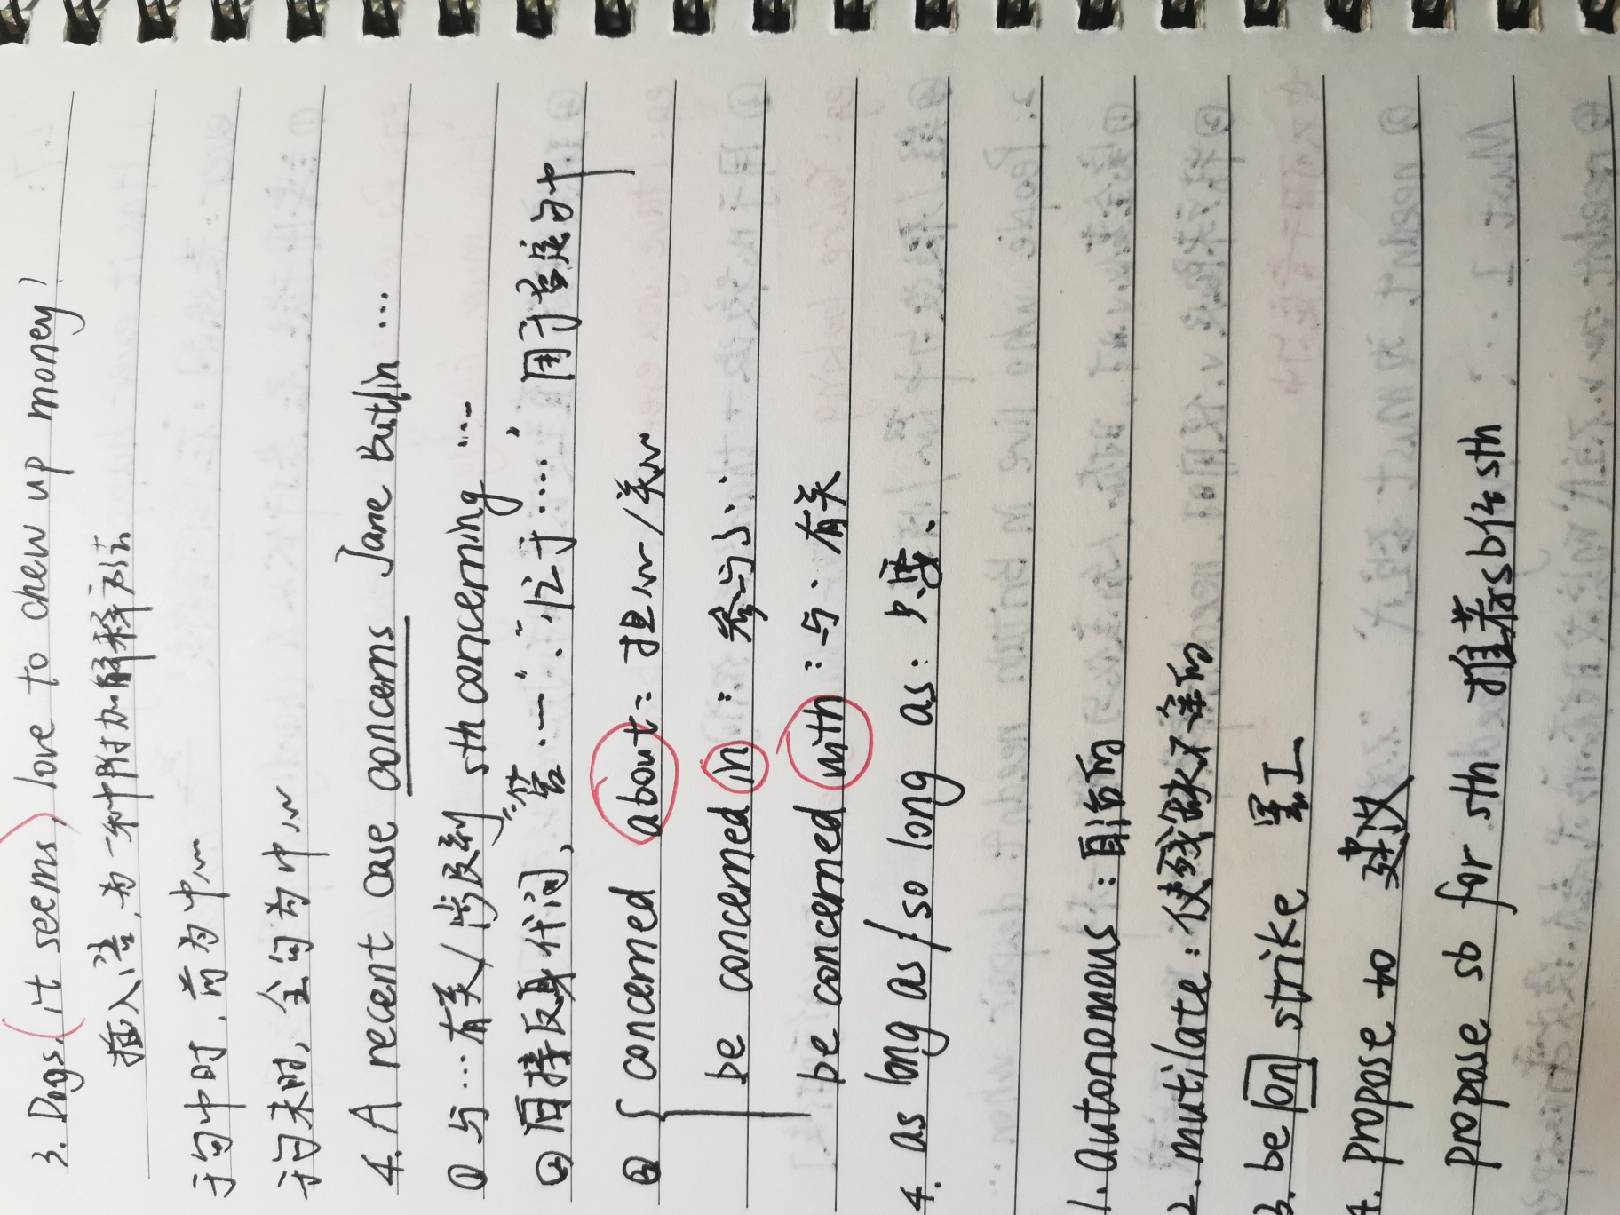 3. Dogs, (it seems,) love to chew up money!
插入语,为一种附加解释, 表示
于句中时,前为中心
于句末时,全句为中心
4. A recent case concerns Jane Butlin ...
① 与…有关/涉及到 sth concerning ....
② 后接反身代词, 答 ... 忙于..... 用于否定句中
③ { concerned about: 担心/关心
be concerned in : 参与
be concerned with : 与..有关
4. as long as / so long as : 只要.
1. Autonomous : 自治的
2. mutilate : 使残缺不全的
3. be on strike 罢工
4. propose to 建议
propose sb for sth 推荐sb任sth